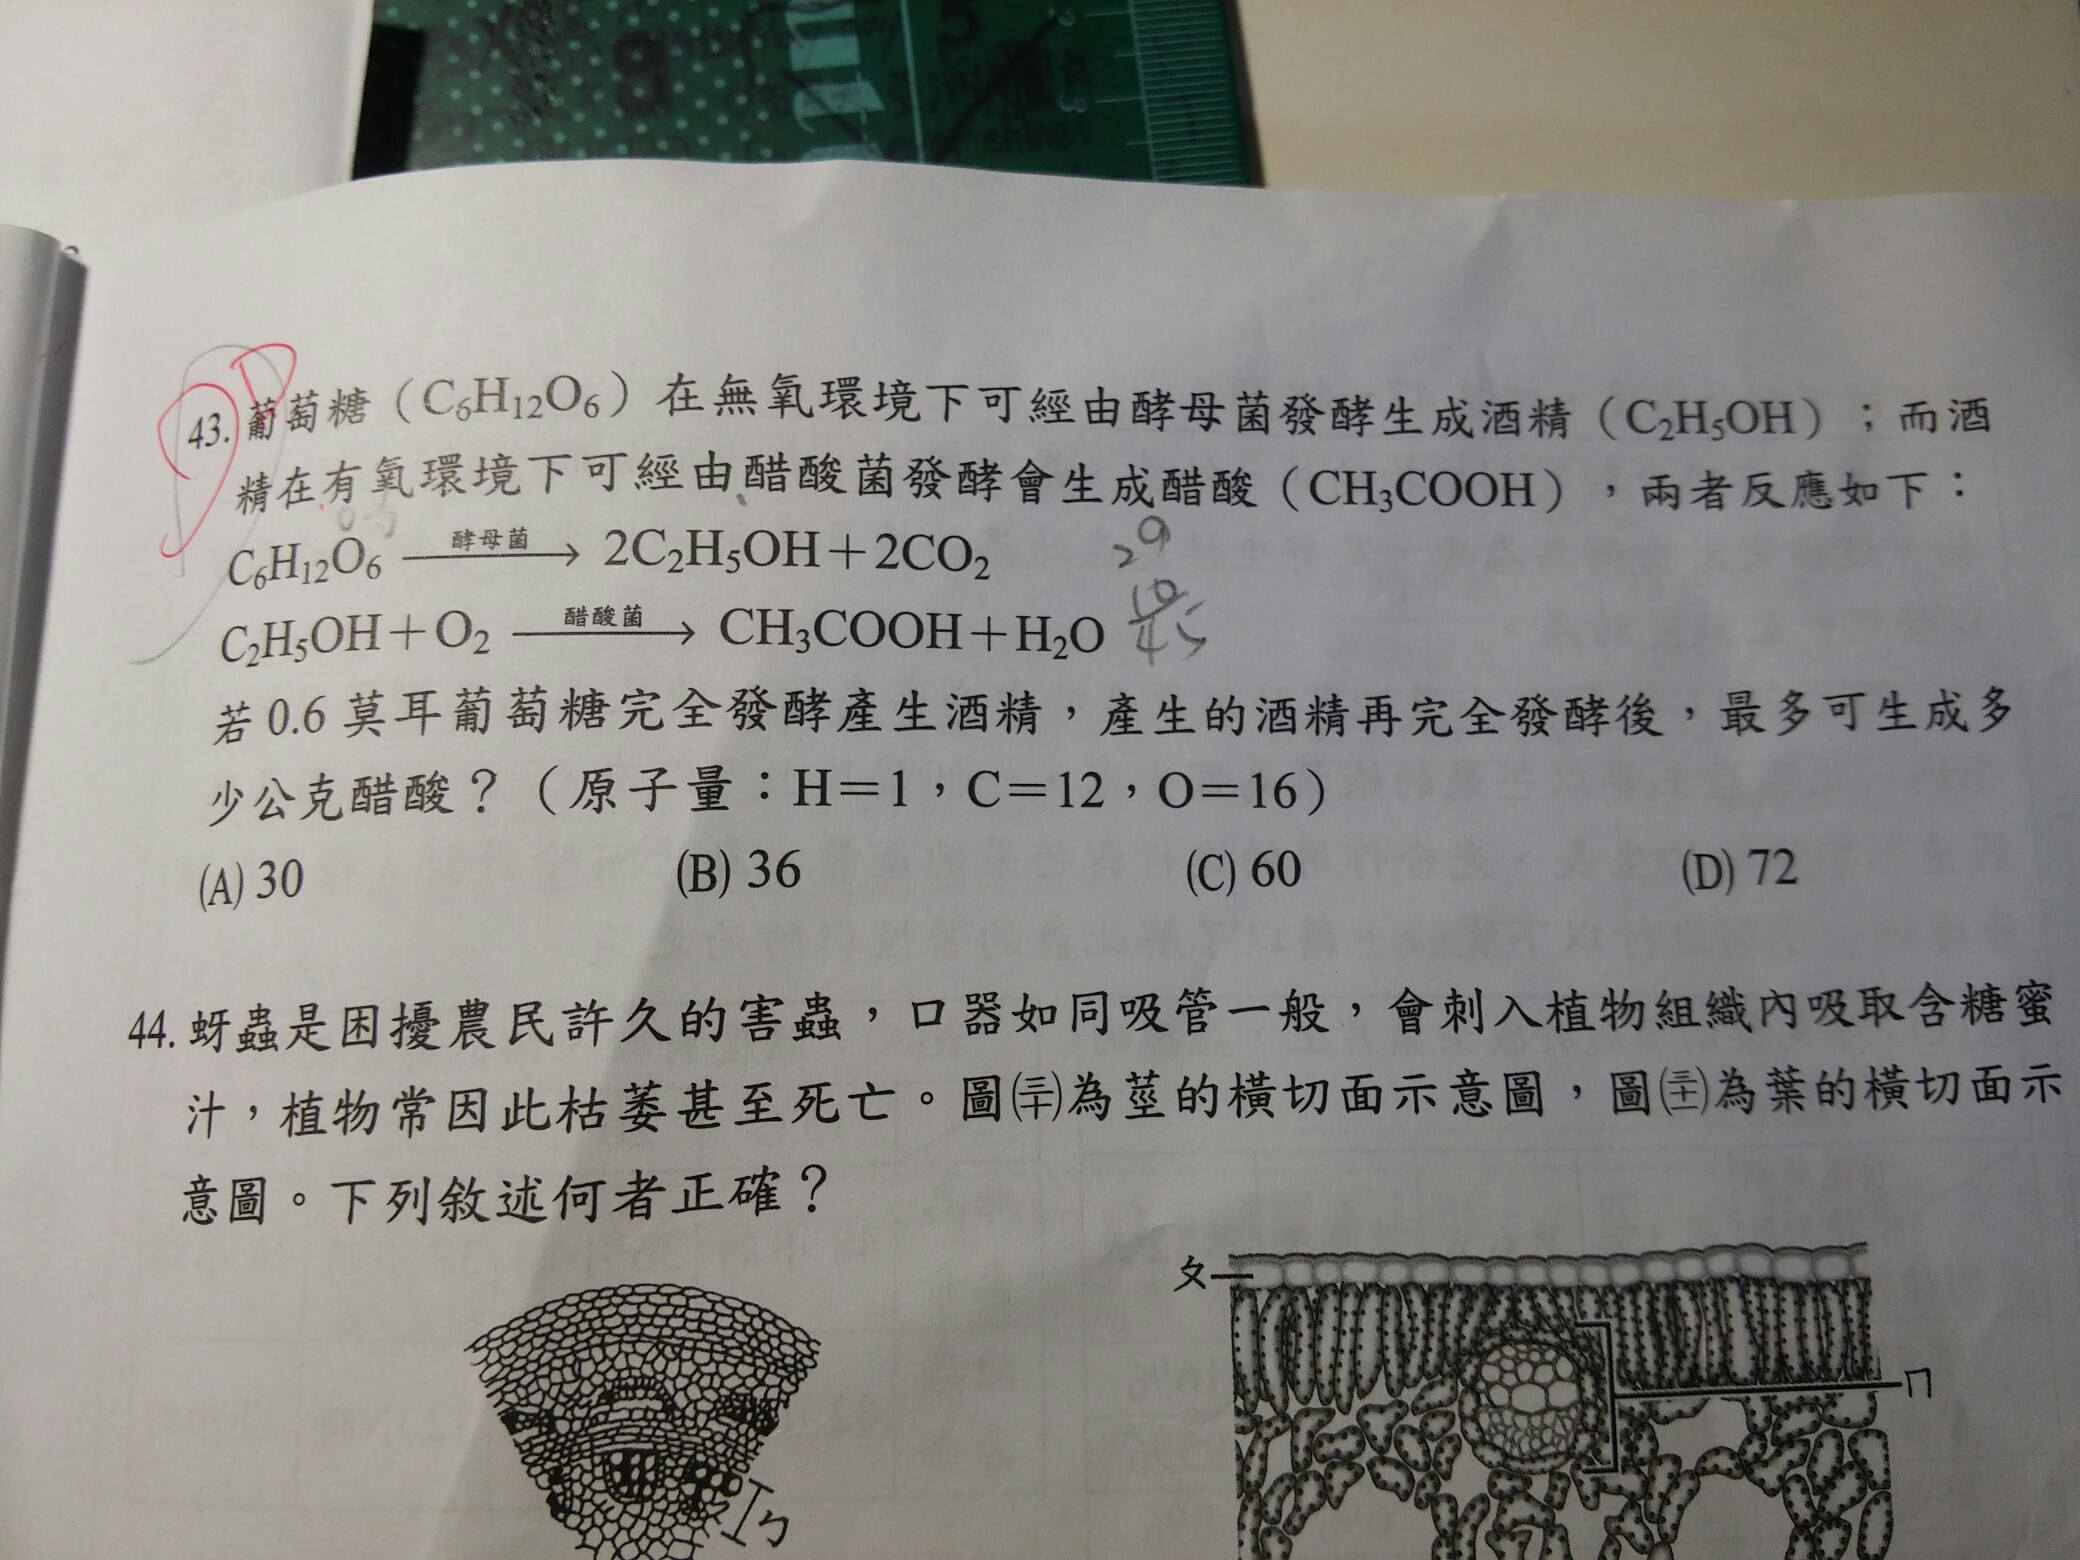 5
D
43. 葡萄糖（C₆H₁₂O₆）在無氧環境下可經由酵母菌發酵生成酒精（C₂H₅OH）；而酒
精在有氧環境下可經由醋酸菌發酵會生成醋酸（CH₃COOH），兩者反應如下：
C₆H₁₂O₆ 酵母菌→ 2C₂H₅OH＋2CO₂
29
C₂H₅OH＋O₂ 醋酸菌→ CH₃COOH＋H₂O
若 0.6 莫耳葡萄糖完全發酵產生酒精，產生的酒精再完全發酵後，最多可生成多
少公克醋酸？（原子量：H＝1，C＝12，O＝16）
(A) 30 (B) 36 (C) 60 (D) 72
44. 蚜蟲是困擾農民許久的害蟲，口器如同吸管一般，會刺入植物組織內吸取含糖蜜
汁，植物常因此枯萎甚至死亡。圖(三十)為莖的橫切面示意圖，圖(三十一)為葉的橫切面示
意圖。下列敘述何者正確？
ㄆ
ㄇ
ㄅ